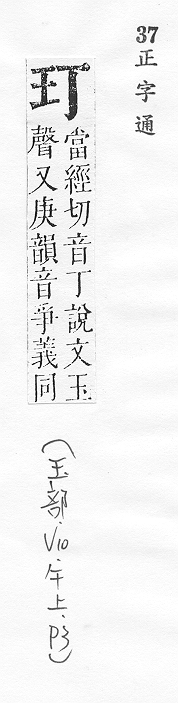 37正字通
玎
當經切音丁說文玉
聲又庚韻音爭義同
(玉部、V10.午上.P3)